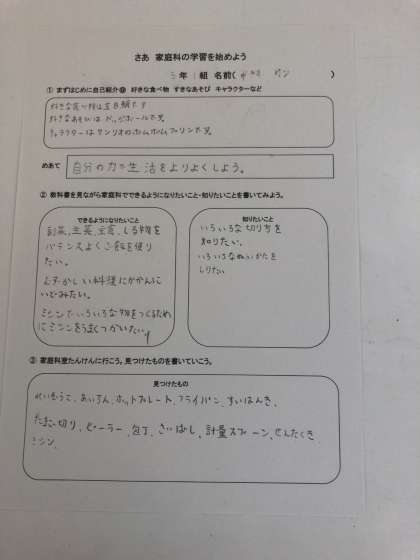 さあ 家庭科の学習を始めよう
5年 1組 名前( )
① まずはじめに自己紹介 好きな食べ物 すきなあそび キャラクターなど
好きな食べ物は玉目鯛です
好きなあそびは ドッジボールです。
キャラクターはサンリオのポムポムプリンです。
めあて 自分の力で生活をよりよくしよう。
② 教科書を見ながら家庭科でできるようになりたいこと・知りたいことを書いてみよう。
できるようになりたいこと
副菜、主菜、主食、しる物を
バランスよくご飯を使り
たい。
むずかしい料理にかかんに
いどみたい。
ミシンでいろいろな物をつくるため
にミシンをうまくつかいたい。
知りたいこと
いろいろな切り方を
知りたい。
いろいろなぬいかたを
しりたい
③ 家庭科室たんけんに行こう。見つけたものを書いていこう。
見つけたもの
れいぞうこ、あいろん、ホットプレート、フライパン、すいはんき、
たまご切り、ピーラー、包丁、さいばし、計量スプーン、せんたくき
ミシン、